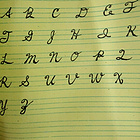 A B C D E F
G H I J K
L M N O P Q
R S T U V W X
Y Z